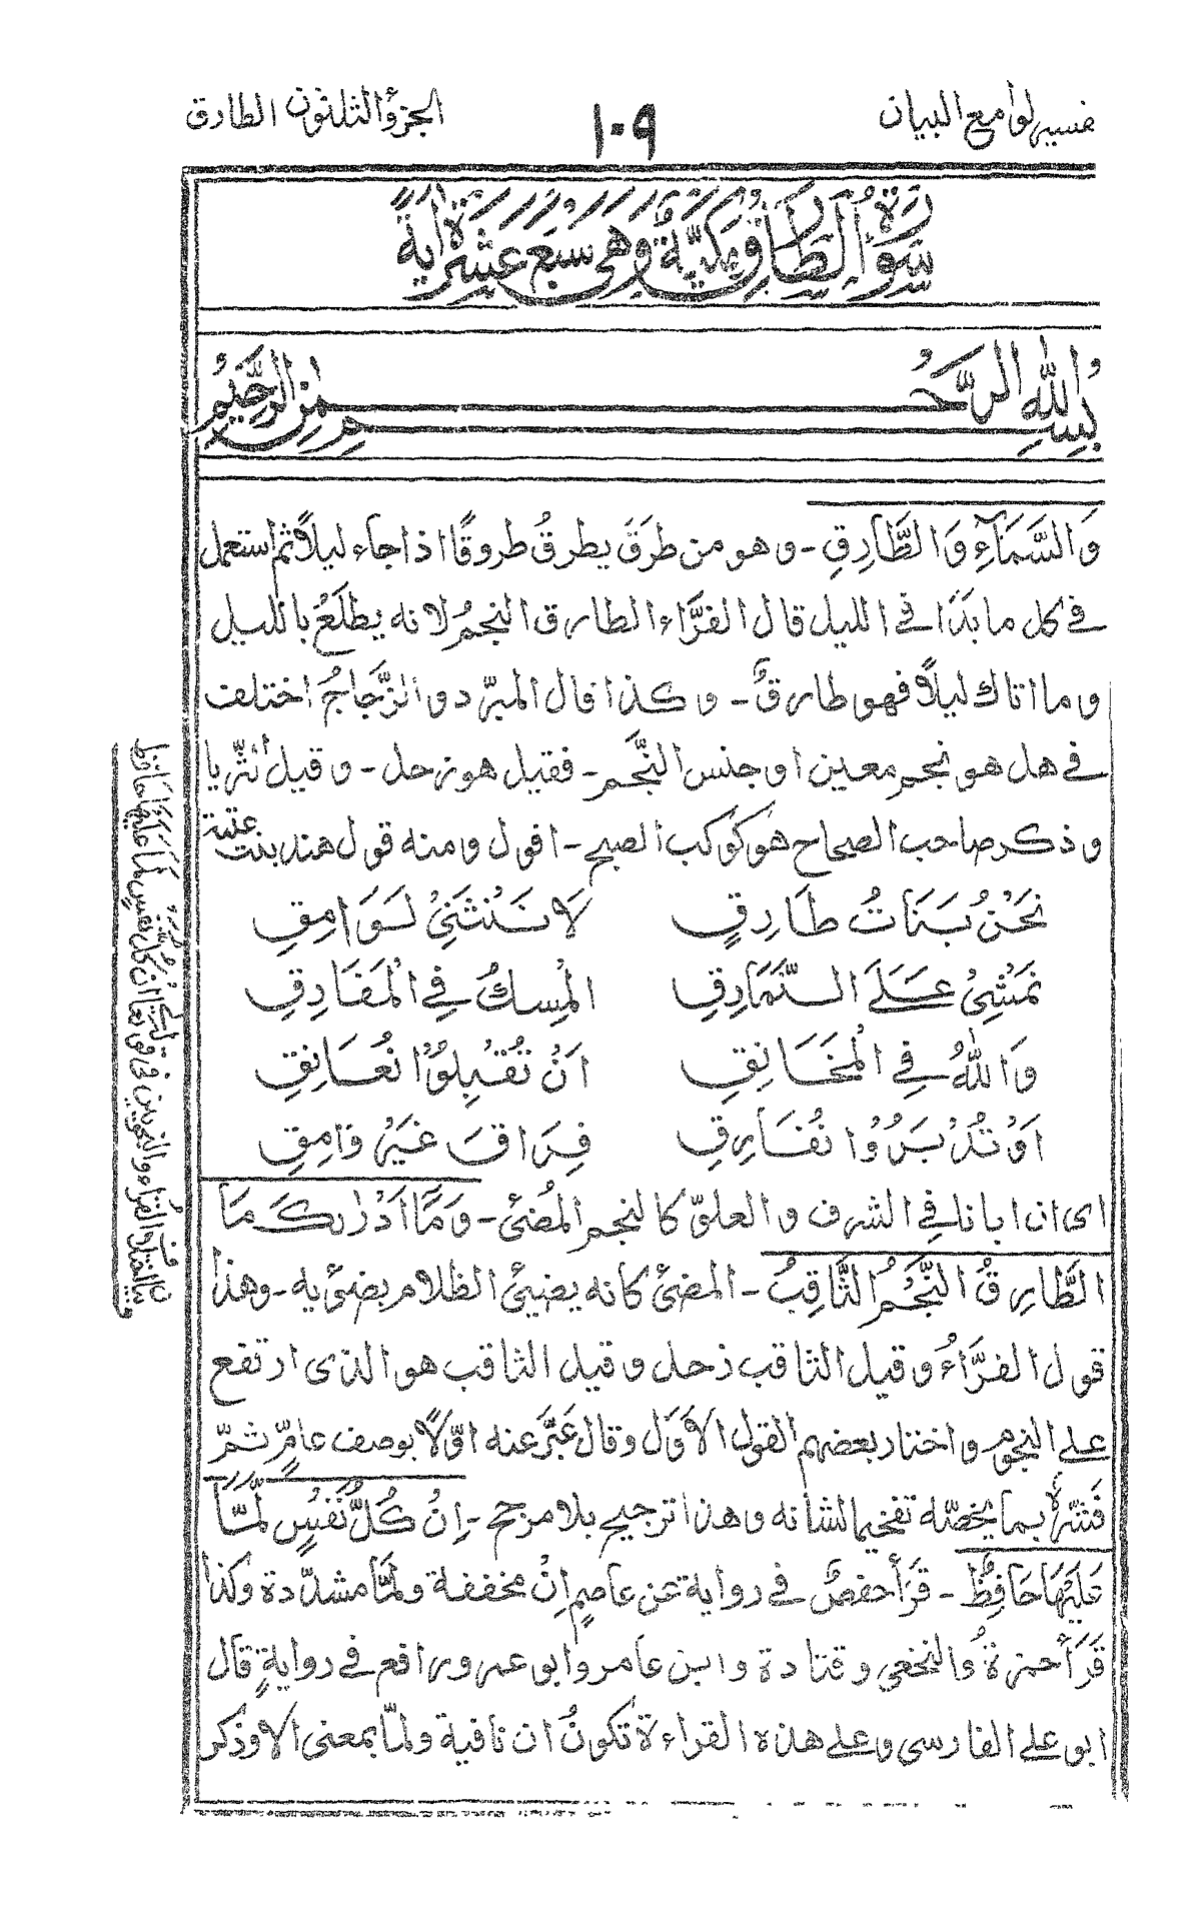 تفسير لوامع البيان
١٠٩
الجزؤ الثلثون الطارق
سُوْرَةُ الطَّارِقِ مَكِّيَّةٌ وَهِيَ سَبْعَ عَشْرَةَ اٰيَةً
بِسْمِ اللّٰهِ الرَّحْمٰنِ الرَّحِيْمِ
وَالسَّمَآءِ وَالطَّارِقِ - وهو من طَرَقَ يطرقُ طروقًا اذا جاء ليلاً ثم استعمل
فى كل ما بَدَأ فى الليل قال الفرَّاء الطارق النجمُ لانه يطلَعُ بالليل
وما اتاك ليلًا فهو طارقٌ - وكذا قال المبرّد والزَّجاجُ اختلف
فى هل هو نجم معين او جنس النَّجَم - فقيل هو زحل - وقيل الثّريا
وذكر صاحب الصحاح هو كوكب الصبح - اقول ومنه قول هند بنت عتبة
نَحْنُ بَنَاتُ طَارِقٍ لَا نَنْثَنِىْ لِوَامِقِ
نَمْشِىْ عَلَى النَّمَارِقِ الْمِسكُ فِى الْمَفَارِقِ
وَاللّٰهُ فِى الْمَخَانِقِ اَنْ تُقْبِلُوْا نُعَانِقِ
اَوْ تُدْبِرُوْا نُفَارِقِ فِرَاقَ غَيْرَ وَامِقِ
اى ان ابانا فى الشرف والعلوّ كالنجم المُضئ - وَمَآ اَدْرٰىكَ مَا
الطَّارِقُ النَّجْمُ الثَّاقِبُ - المضئ كانه يضيئ الظلام بضوئيه - وهذا
قول الفرَّاءُ وقيل الثاقب زحل وقيل الثاقب هو الذى ارتفع
على النجوم واختار بعضهم القول الاوّل وقال عَبَّرَ عنه اوّلًا بوصف عامٍّ ثمّ
فَسَّرَهُ بما يخصّه تفخيما لشانه وهذا ترجيح بلا مرجح - اِنْ كُلُّ نَفْسٍ لَّمَّا
عَلَيْهَا حَافِظٌ - قَرَأَ حفصٌ فى رواية عن عاصمٍ اِنْ مخففة ولمَّا مشدّدة وكذا
قَرَأَ حمزةُ والنخعى وقتادة وابن عامر وابو عمر ورافع فى روايةٍ قال
ابو على الفارسى وعلى هذه القراءة تكونُ ان نافية ولمّا بمعنى الا وذكر